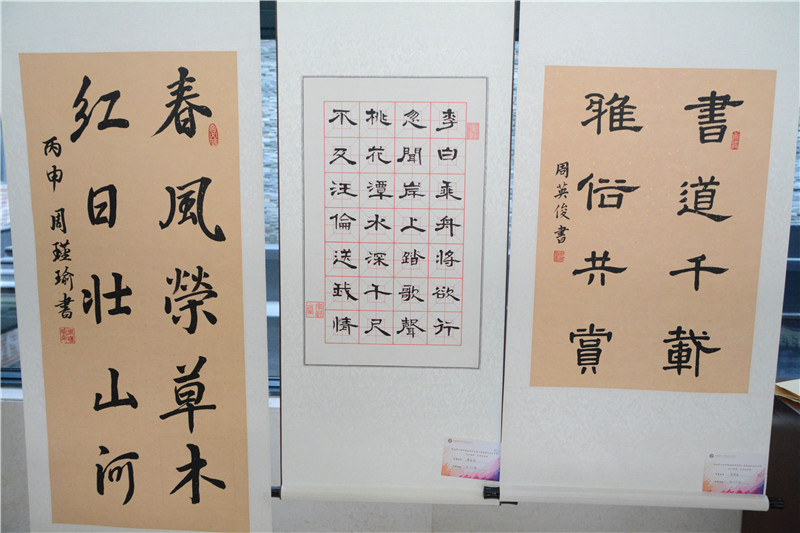 春風榮草木
红日壮山河
丙申 周瑾瑜書
李白乘舟將欲行
忽聞岸上踏歌聲
桃花潭水深千尺
不及汪倫送我情
書道千載
雅俗共賞
周英俊書